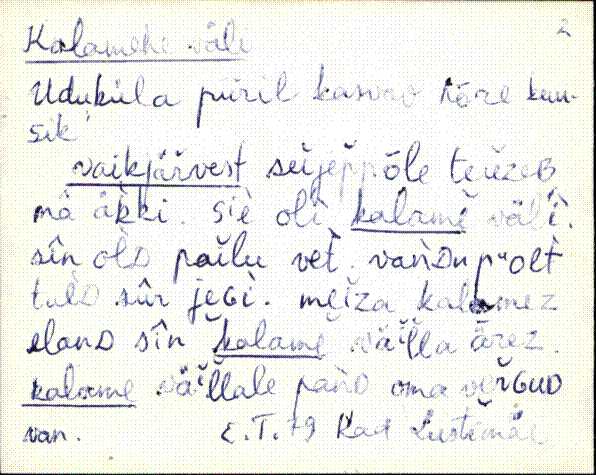 Kalamehe väli 2
Uduküla püril kasvav nõre kuu-
sik
vaikjärvest seijeppõle teüzeʙ
mä äkki. siè olì kalamè välì.
sîn olᴅ pailu vet. vanᴅu pᵘolt
tulᴅ sûr jeɢì. meìza kalamez
elanᴅ sîn kalamè välla ärez.
kalame vällale panᴅ oma vergud
van. E.T. 79 Kad Lustimäe